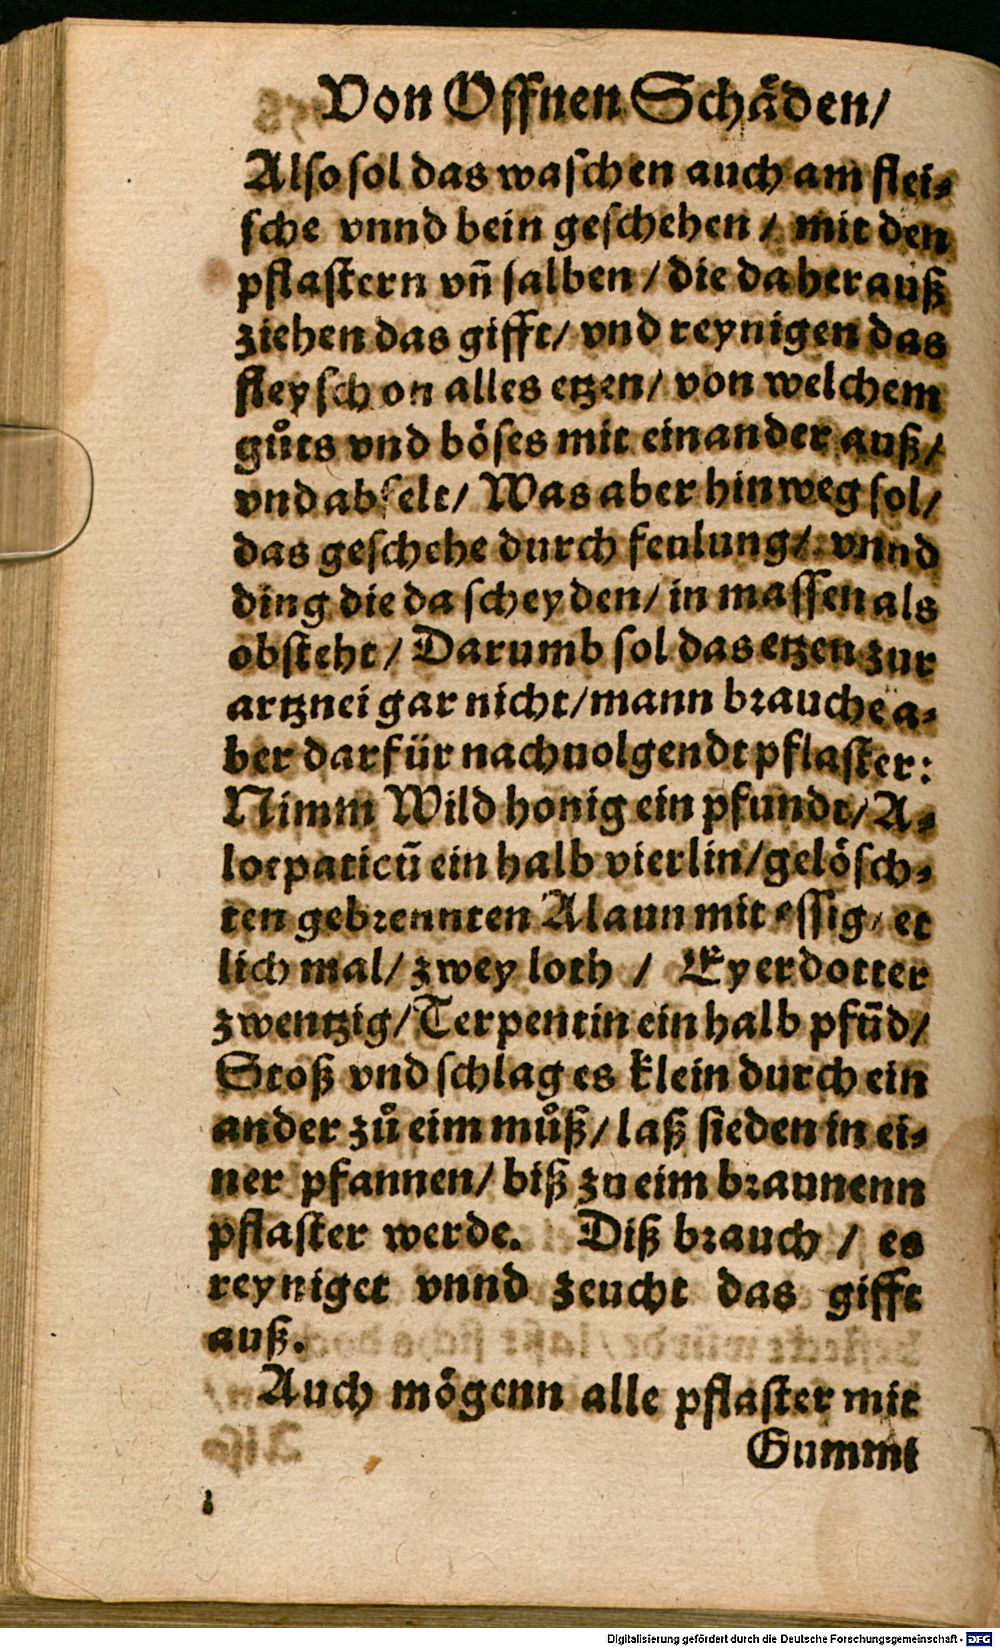 Von Offnen Schåden/
Also sol das waschen auch am flei⸗
sche vnnd bein geschehen / mit den
pflastern vñ salben / die da herauß
ziehen das gifft/ vnd reynigen das
fleysch on alles etzen/ von welchem
gůts vnd böses mit einander auß/
vnd abfelt/ Was aber hinweg sol/
das geschehe durch feulung/ vnnd
ding die da scheyden/ in massen als
obsteht/ Darumb sol das etzen zur
artznei gar nicht/ mann brauche a⸗
ber darfür nachuolgendt pflaster:
Nimm Wild honig ein pfundt/ A⸗
loepaticū ein halb vierlin/ gelösch⸗
ten gebrennten Alaun mit essig/ et
lich mal/ zwey loth / Eyerdotter
zwentzig/ Terpentin ein halb pfūd/
Stoß vnd schlag es klein durch ein
ander zů eim můß/ laß sieden in ei⸗
ner pfannen/ biß zu eim braunenn
pflaster werde. Diß brauch / es
reyniget vnnd zeucht das gifft
auß.
Auch mögenn alle pflaster mit
Gummi
Digitalisierung gefördert durch die Deutsche Forschungsgemeinschaft - DFG